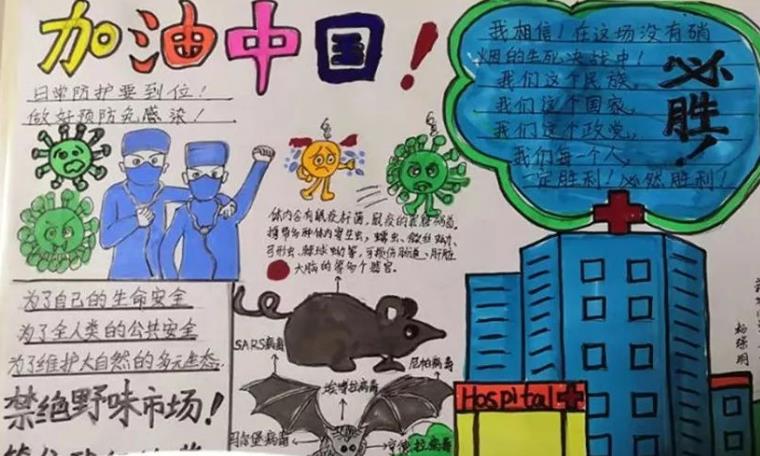 加油中国！
日常防护要到位！
做好预防免感染！
我相信！在这场没有硝
烟的生死决战中！
我们这个民族、
我们这个国家、
我们这个政党、
我们每一个人，
一定胜利！必然胜利！
必胜！
体内含有鼠疫杆菌,鼠疫的
大脑的等多个器官。
为了自己的生命安全
为了全人类的公共安全
为了维护大自然的多元生态.
禁绝野味市场！
SARS病毒
埃博拉病毒
尼帕病毒
马尔堡病毒
亨德拉病毒
Hospital